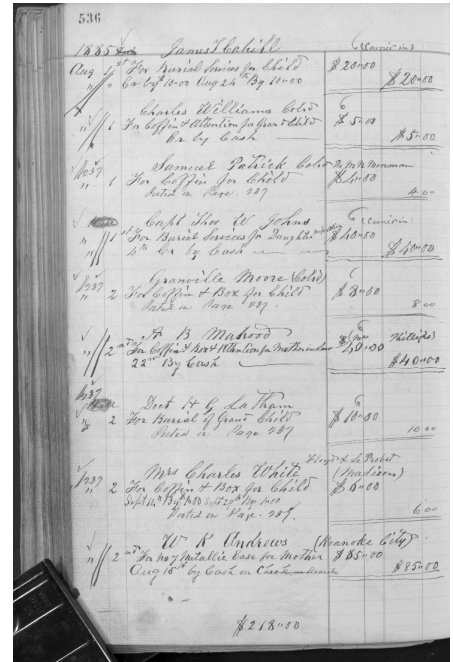 536
1885 James T Cahill (Carrier in)
Aug 1st For Burial Services for Child $20.00
" " Cr by 10.00 Aug 24th By 10.00 $20.00
Charles Williams Col'd
" 1 For Coffin & Attention for Grand Child $5.00
Cr by Cash $5.00
237 Samuel Patrick Col'd
" 1 For Coffin for Child $4.00
Posted on Page. 237 4.00
Capt Thos W Johns (Carrier in)
" 1st For Burial Services for Daughter $40.00
4th Cr by Cash $40.00
237 Granville Moore (Col'd)
" 2 For Coffin & Box for Child $8.00
Posted on Page 237 8.00
A B Mahood
" 2nd For Coffin & Box & Attention for Mother in Law $40.00
22nd By Cash $40.00
237
Doct H G Latham
" 2 For Burial of Grand Child $10.00
Posted on Page 237 10.00
Mrs Charles White (Madison)
237
" 2 For Coffin & Box for Child $6.00
Posted on Page. 237. 6.00
W R Andrews (Roanoke City)
" 2nd For No 7 Metallic Case for Mother $85.00
Aug 15th by Cash on Check $85.00
$218.00